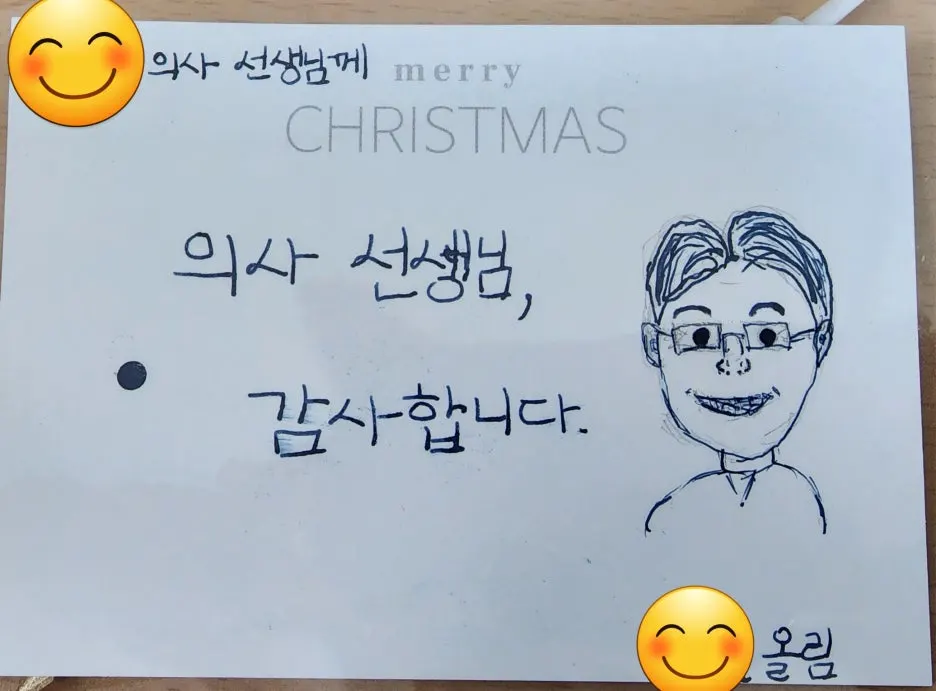 의사 선생님께
merry
CHRISTMAS
의사 선생님,
감사합니다.
올림